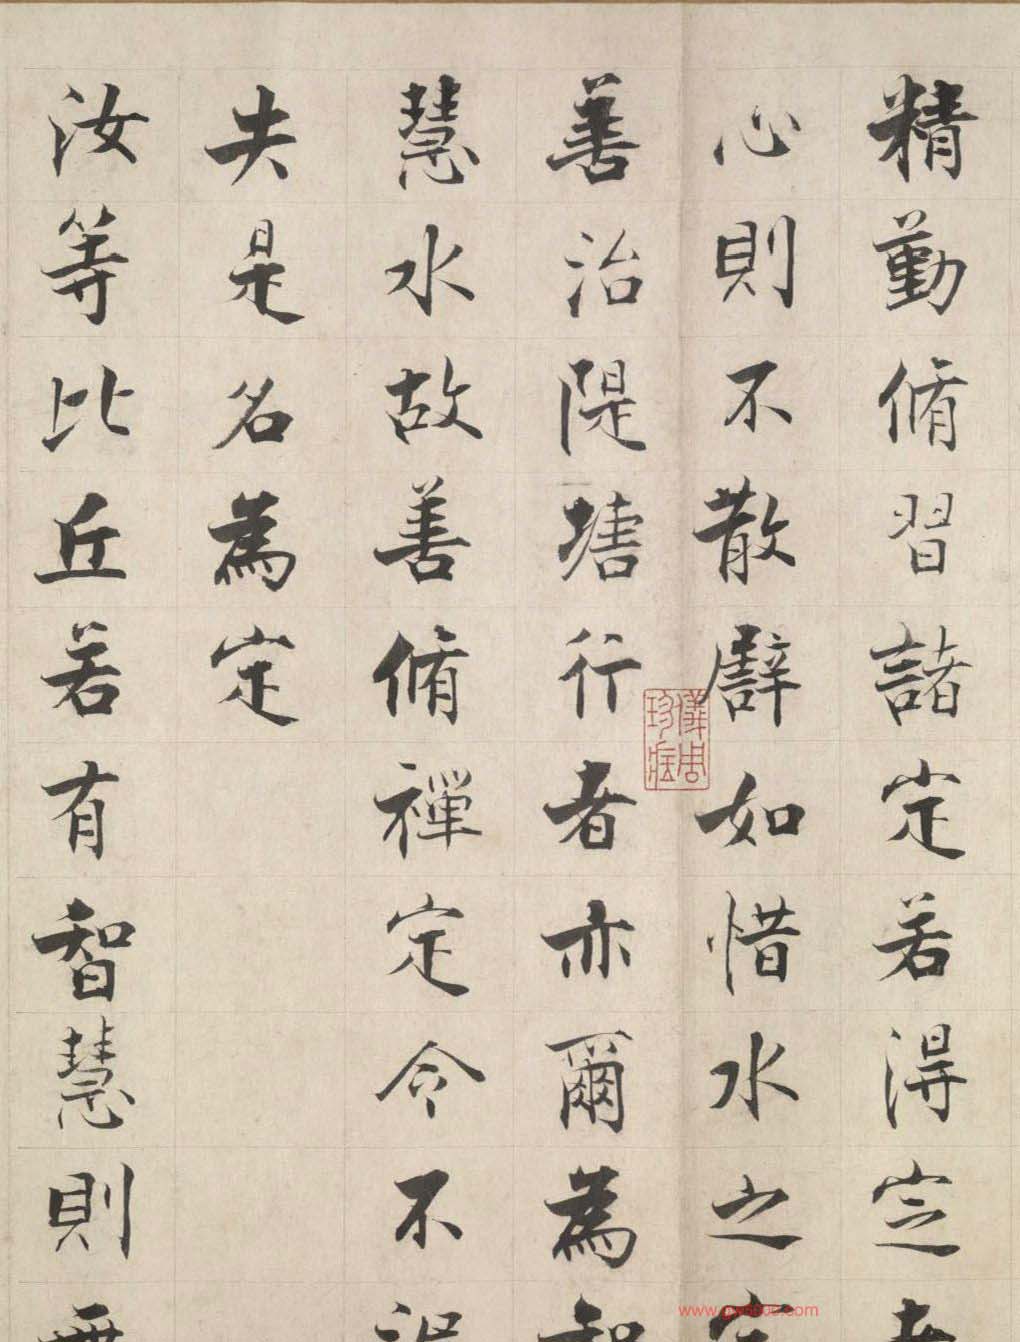 精勤脩習諸定若得定
心則不散譬如惜水之
善治隄塘行者亦爾為
慧水故善脩禪定令不
失是名為定
汝等比丘若有智慧則